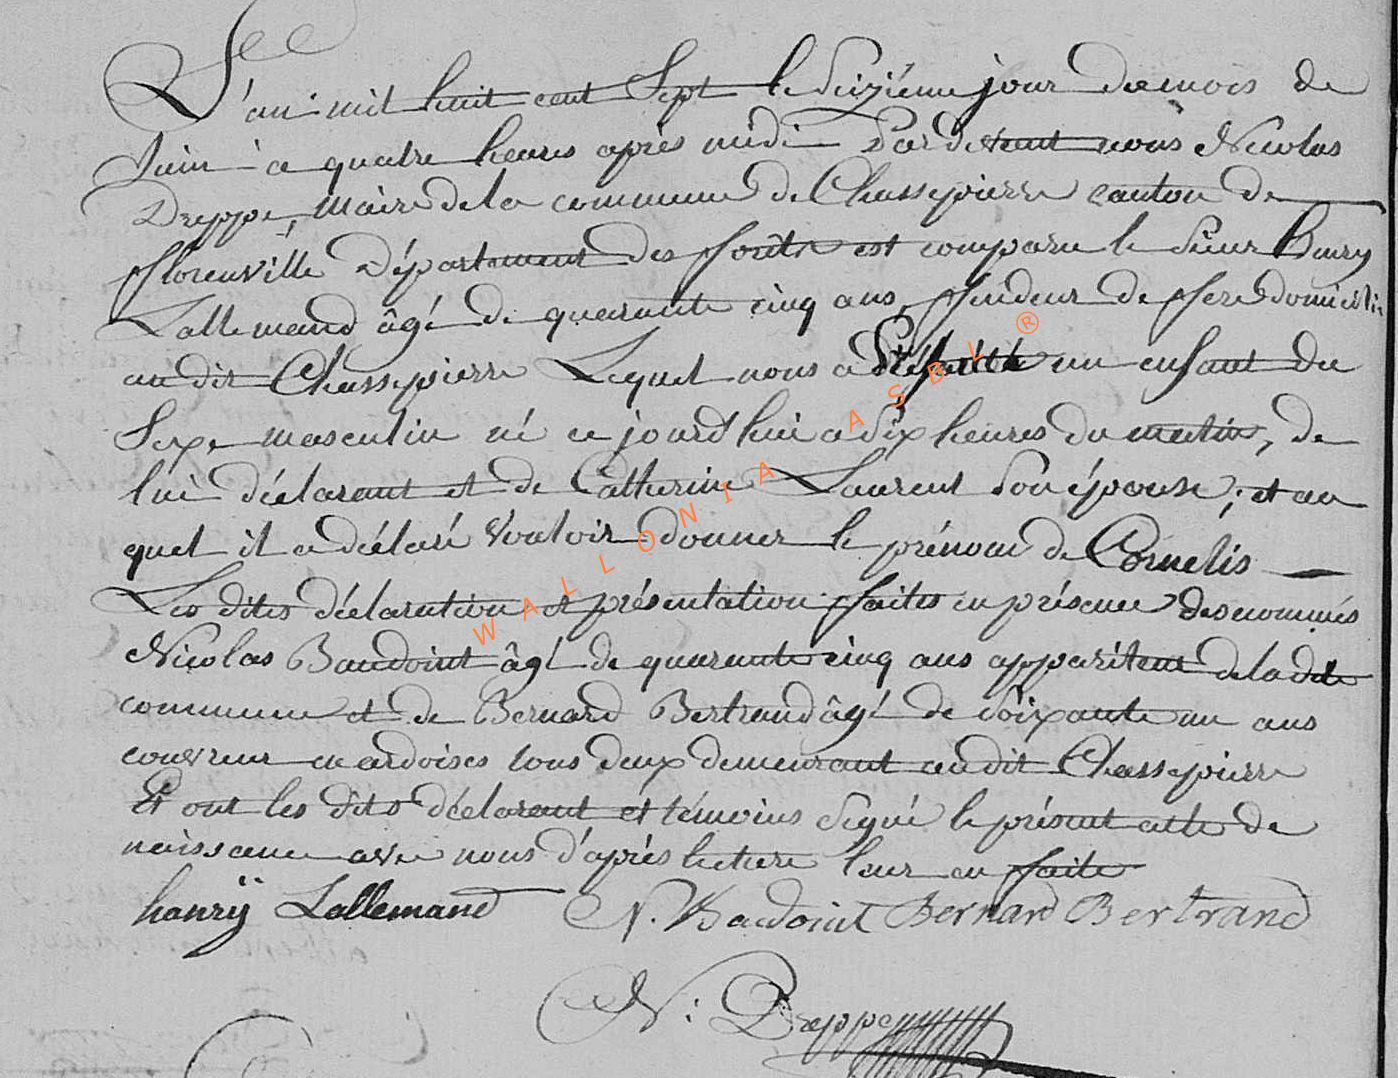 L'an mil huit cent Sept le Seizième jour de mois de
Juin à quatre heures après midi Pardevant nous Nicolas
Dreppe, maire de la commune de Chassepierre canton de
florenville Département des forêts est comparu le Sieur Henry
Lallemand âgé de quarante cinq ans, fendeur de fer domicilié
au dit Chassepierre Lequel nous a présenté un enfant du
Sexe masculin né ce jourd'hui a Six heures du matin, de
lui déclarant et de Catherine Laurent Son épouse, et au
quel il a déclaré vouloir donner le prénom de Cornelis
Les dites déclaration et présentation faites en présence des nommés
Nicolas Baudoint âgé de quarante cinq ans appariteur de la dite
commune et de Bernard Bertrand âgé de Soixante un ans
couvreur en ardoises tous deux demeurant au dit Chassepierre
Et ont les dits déclarant et témoins Signé le présent acte de
naissance avec nous d'après lecture leur en faite
henrÿ Lallemand N. Baudoint Bernard Bertrand
N: Dreppe
WALLONIA ASBL ®